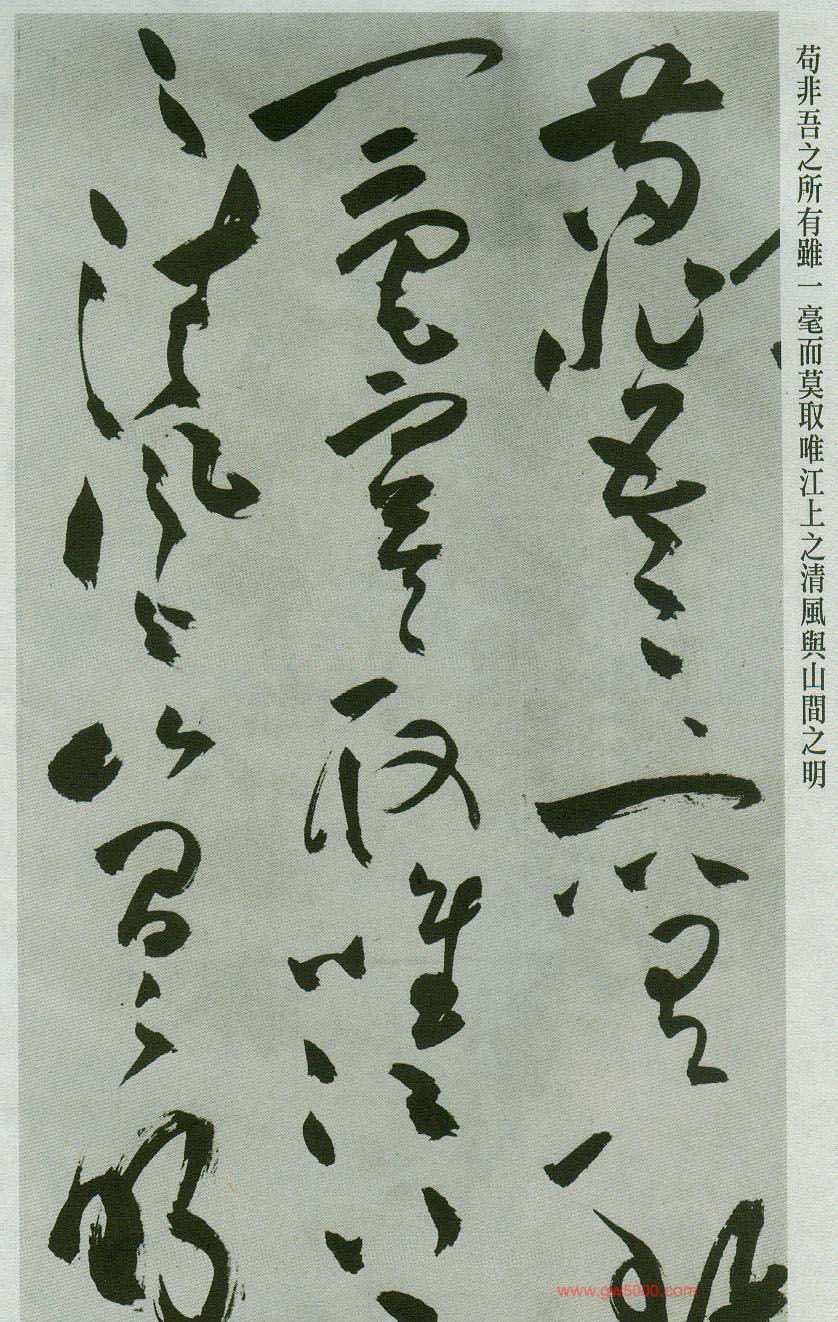 苟非吾之所有雖一毫而莫取唯江上之清風與山間之明
苟非吾之所有雖
一毫而莫取唯江上
之清風與山間之明
www.gw5000.com